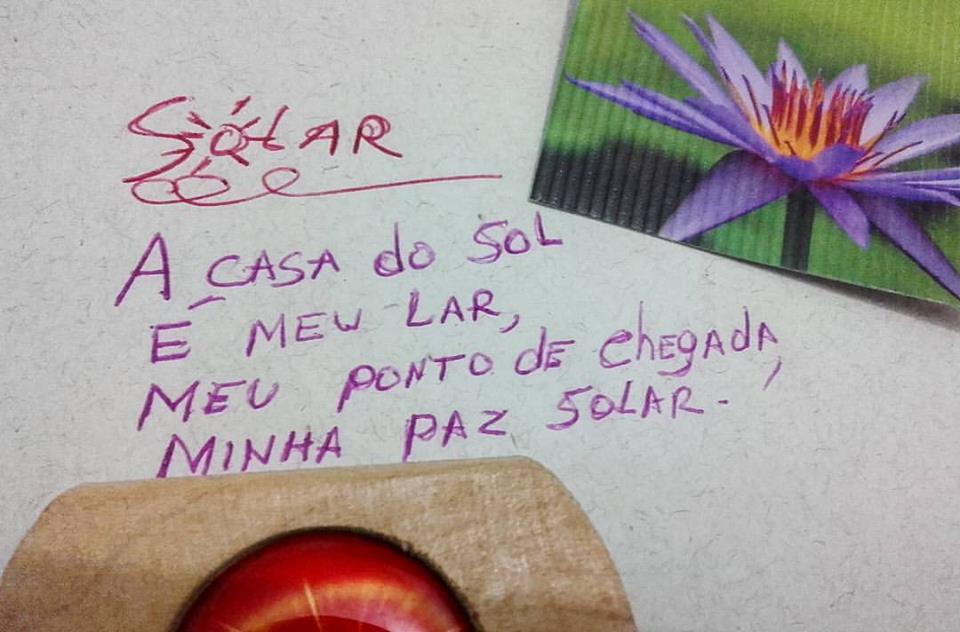 SOLAR
A CASA do SOL
É MEU LAR,
MEU PONTO DE chegada,
MINHA PAZ SOLAR.